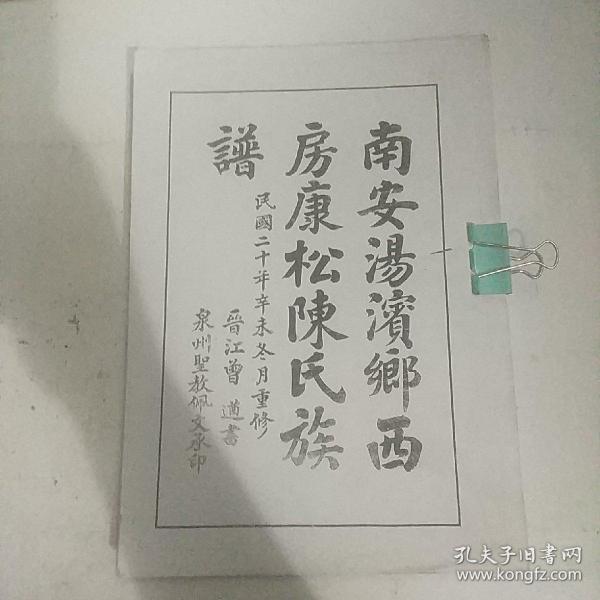 南安湯濱鄉西
房康松陳氏族
譜
民國二十年辛未冬月重修
晉江曾遒書
泉州聖教佩文承印
孔夫子旧书网
www.kongfz.com